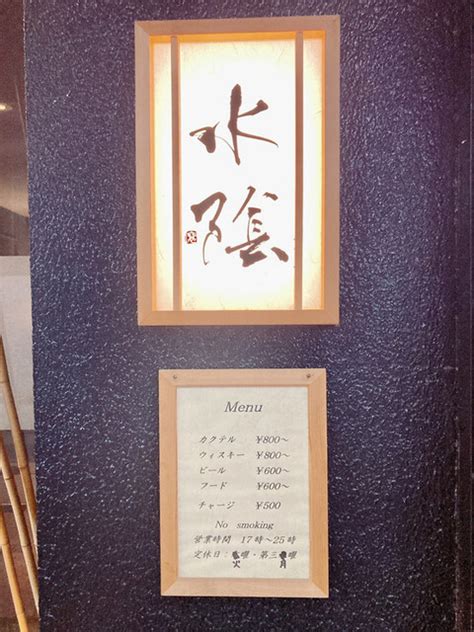 水
陰
Menu
カクテル ¥800~
ウィスキー ¥800~
ビール ¥600~
フード ¥600~
チャージ ¥500
No smoking
営業時間 17時~25時
定休日:火曜・第三月曜